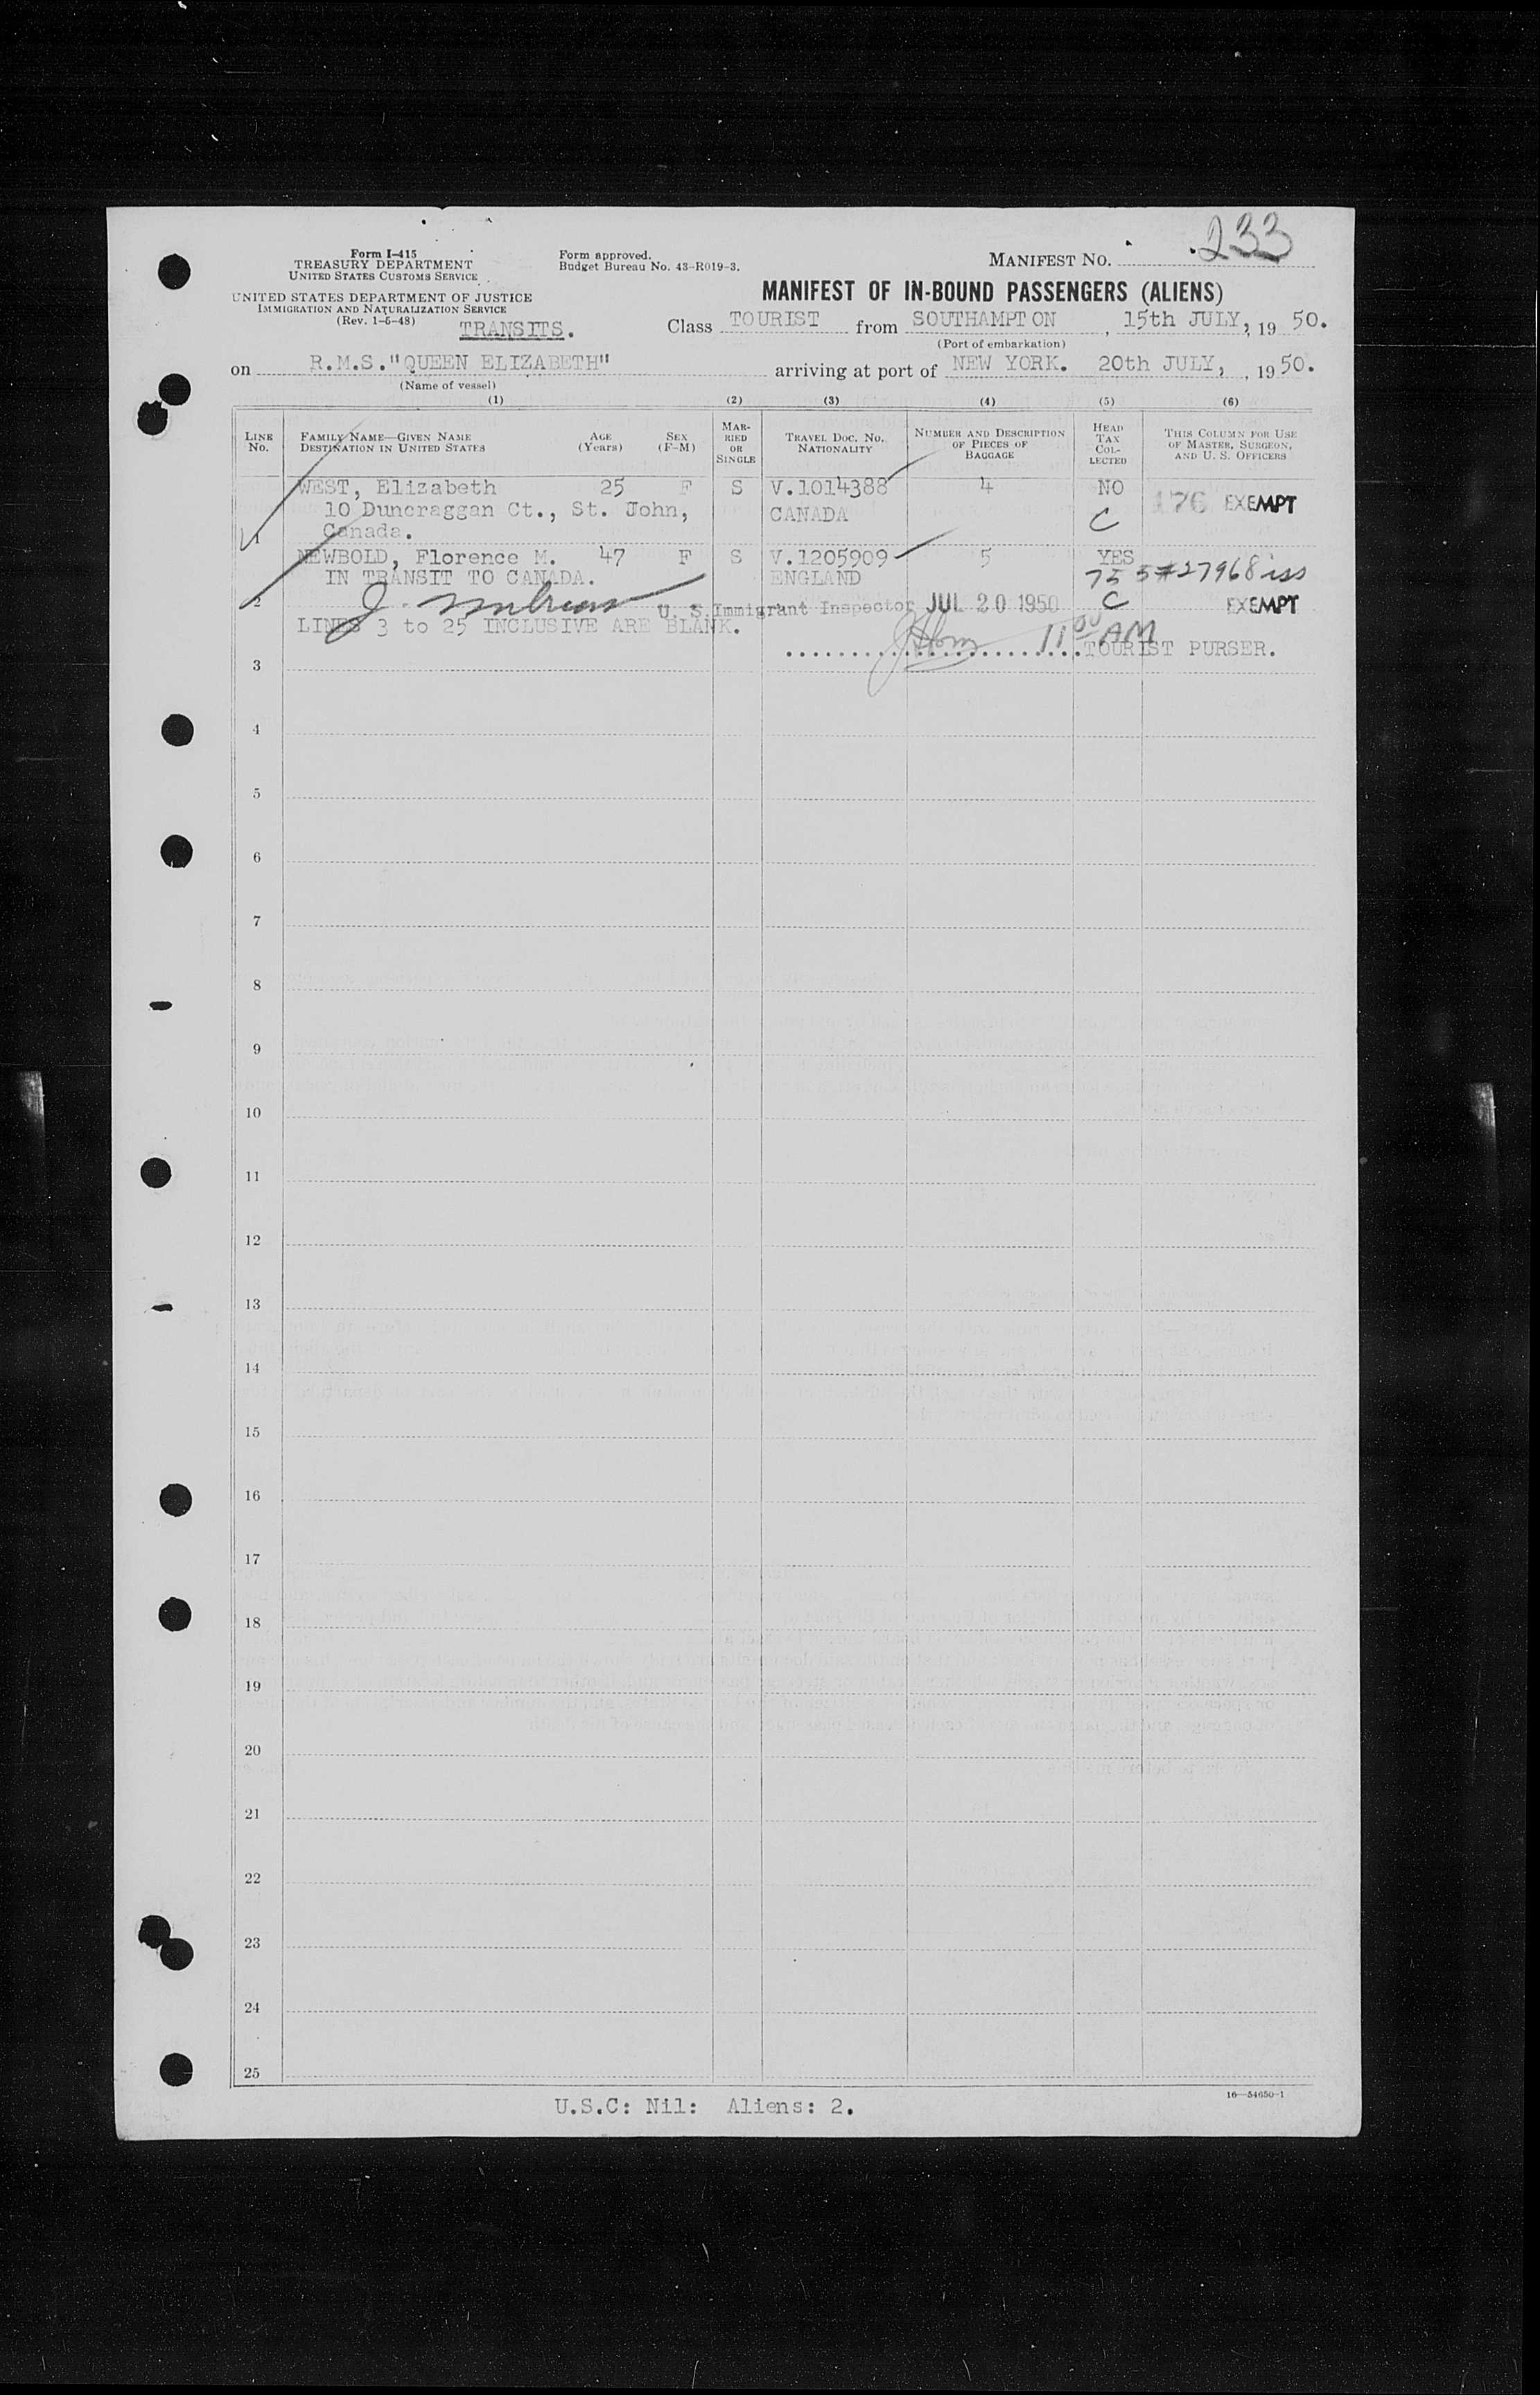 233
Form I-415
TREASURY DEPARTMENT
UNITED STATES CUSTOMS SERVICE
Form approved.
Budget Bureau No. 43-R019-3.
MANIFEST NO.
UNITED STATES DEPARTMENT OF JUSTICE
IMMIGRATION AND NATURALIZATION SERVICE
(Rev. 1-5-48)
TRANSITS.
MANIFEST OF IN-BOUND PASSENGERS (ALIENS)
Class TOURIST from SOUTHAMPTON, 15th JULY, 1950.
(Port of embarkation)
on R.M.S."QUEEN ELIZABETH" arriving at port of NEW YORK. 20th JULY, 1950.
(Name of vessel)
(1) (2) (3) (4) (5) (6)
LINE NO.
FAMILY NAME—GIVEN NAME
DESTINATION IN UNITED STATES
AGE (Years)
SEX (F-M)
MARRIED OR SINGLE
TRAVEL DOC. NO. NATIONALITY
NUMBER AND DESCRIPTION OF PIECES OF BAGGAGE
HEAD TAX COLLECTED
THIS COLUMN FOR USE OF MASTER, SURGEON, AND U. S. OFFICERS
WEST, Elizabeth 25 F S V.1014388 4 NO
176 EXEMPT
10 Duncraggan Ct., St. John, CANADA
C
Canada.
1
NEWBOLD, Florence M. 47 F S V.1205909 5 YES
IN TRANSIT TO CANADA. ENGLAND
75 5#27968 iss
2
U. S. Immigrant Inspector JUL 20 1950 C EXEMPT
LINES 3 to 25 INCLUSIVE ARE BLANK.
11 00 AM
TOURIST PURSER.
3
4
5
6
7
8
9
10
11
12
13
14
15
16
17
18
19
20
21
22
23
24
25
16—54650-1
U.S.C: Nil: Aliens: 2.